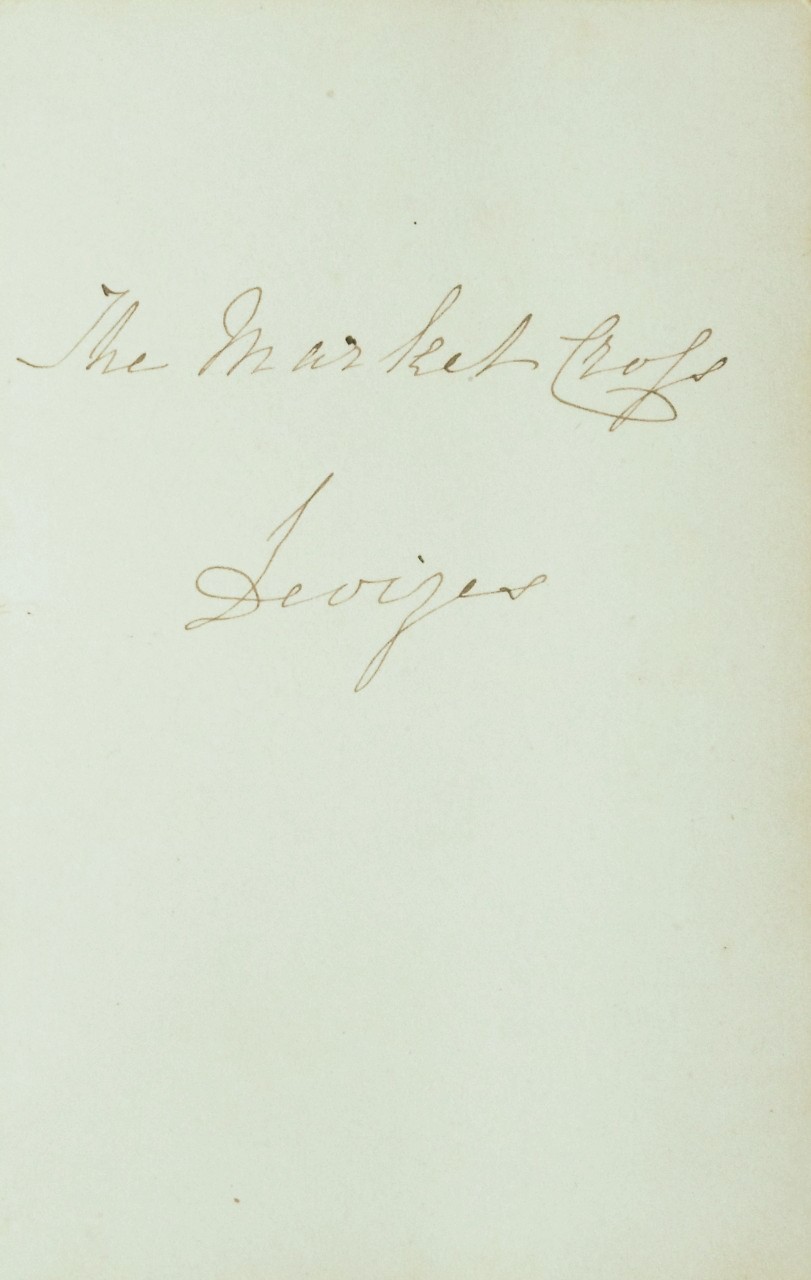 The Market Croſs
Devizes